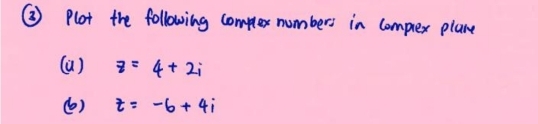 ③ Plot the following complex numbers in complex plane
(a) z = 4 + 2i
(b) z = -6 + 4i